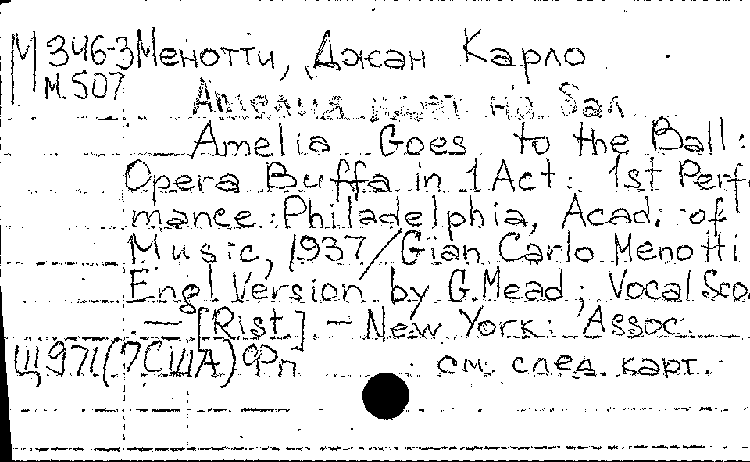 М 346-3 Менотти, Джан Карло
М.507
Амелия идет на бал
Amelia Goes to the Ball:
Opera Buffa in 1 Act: 1st Perfo
mance: Philadelphia, Acad. of
Music, 1937/Gian Carlo Menotti
Engl. Version by G. Mead; Vocal Sco
— [Rist.] — New York: Assoc.
Щ971(7США)Фп см. след. карт.